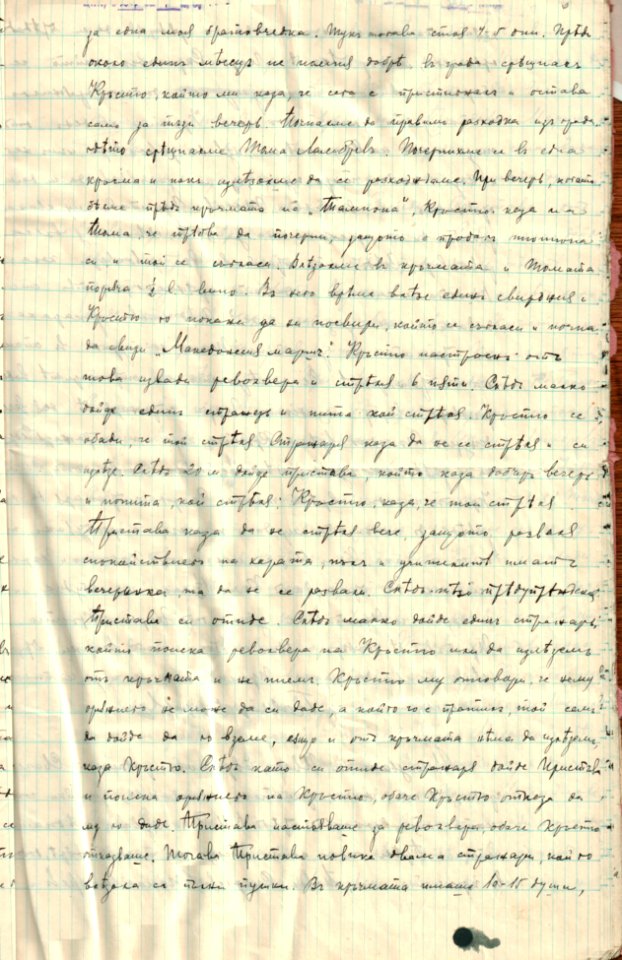 за една моя братовчедка. Тукъ тогава стоя 4-5 дни. Прѣди
около единъ мѣсецъ не помня добрѣ, въ града срѣщнахъ
Кръстю, който ми каза, че сега е пристигналъ и остава
само за тази вечерь. Почнахме да правимъ разходка изъ града
дѣто срѣщнахме Тома . Почерпихме се въ една
кръчма и пакъ излѣзохме да се разхождаме. При вечерь, когато
бѣхме прѣдъ кръчмата на „ “, Кръстю каза на
Тома, че трѣбва да почерпи, защото е продалъ тютюна
си и той се съгласи. Влѣзохме въ кръчмата и Томата
поръча ½ l вино. Въ него врѣме влѣзе единъ свирджия и
Кръстю го покани да ни посвири, който се съгласи и почна
да свири „Македонския маршъ“. Кръстю настроенъ отъ
това извади револвера и стрѣля 6 пѫти. Слѣдъ малко
дойде единъ стражарь и пита кой стрѣля. Кръстю се
обади, че той стрѣля. Стражаря каза да не се стрѣля и си
излѣзе. Слѣдъ 20 м. дойде пристава, който каза добъръ вечерь
и попита, кой стрѣля; Кръстю каза, че той стрѣля.
Пристава каза да не стрѣля вече, защото разваля
спокойствието на хората, пъкъ и учителите иматъ
вечеринка, та да не се развали. Слѣдъ това прѣдупрѣждение
Пристава си отиде. Слѣдъ малко дойде единъ стражарь,
който поиска револвера на Кръстю или да излѣземъ
отъ кръчмата и не пиемъ. Кръстю му отговори, че нему
оръжието не може да си даде, а който го е пратилъ, той самъ
да дойде да го вземе, също и отъ кръчмата нѣма да излѣземъ,
каза Кръстю. Слѣдъ като си отиде стражаря дойде Пристава
и поиска оръжието на Кръстю, обаче Кръстю отказа да
му го даде. Пристава настояваше за револвера, обаче Кръстю
отказваше, Тогава Пристава повика двама стражари, кои го
съ пълни пушки. Въ кръчмата имаше 10-15 души,